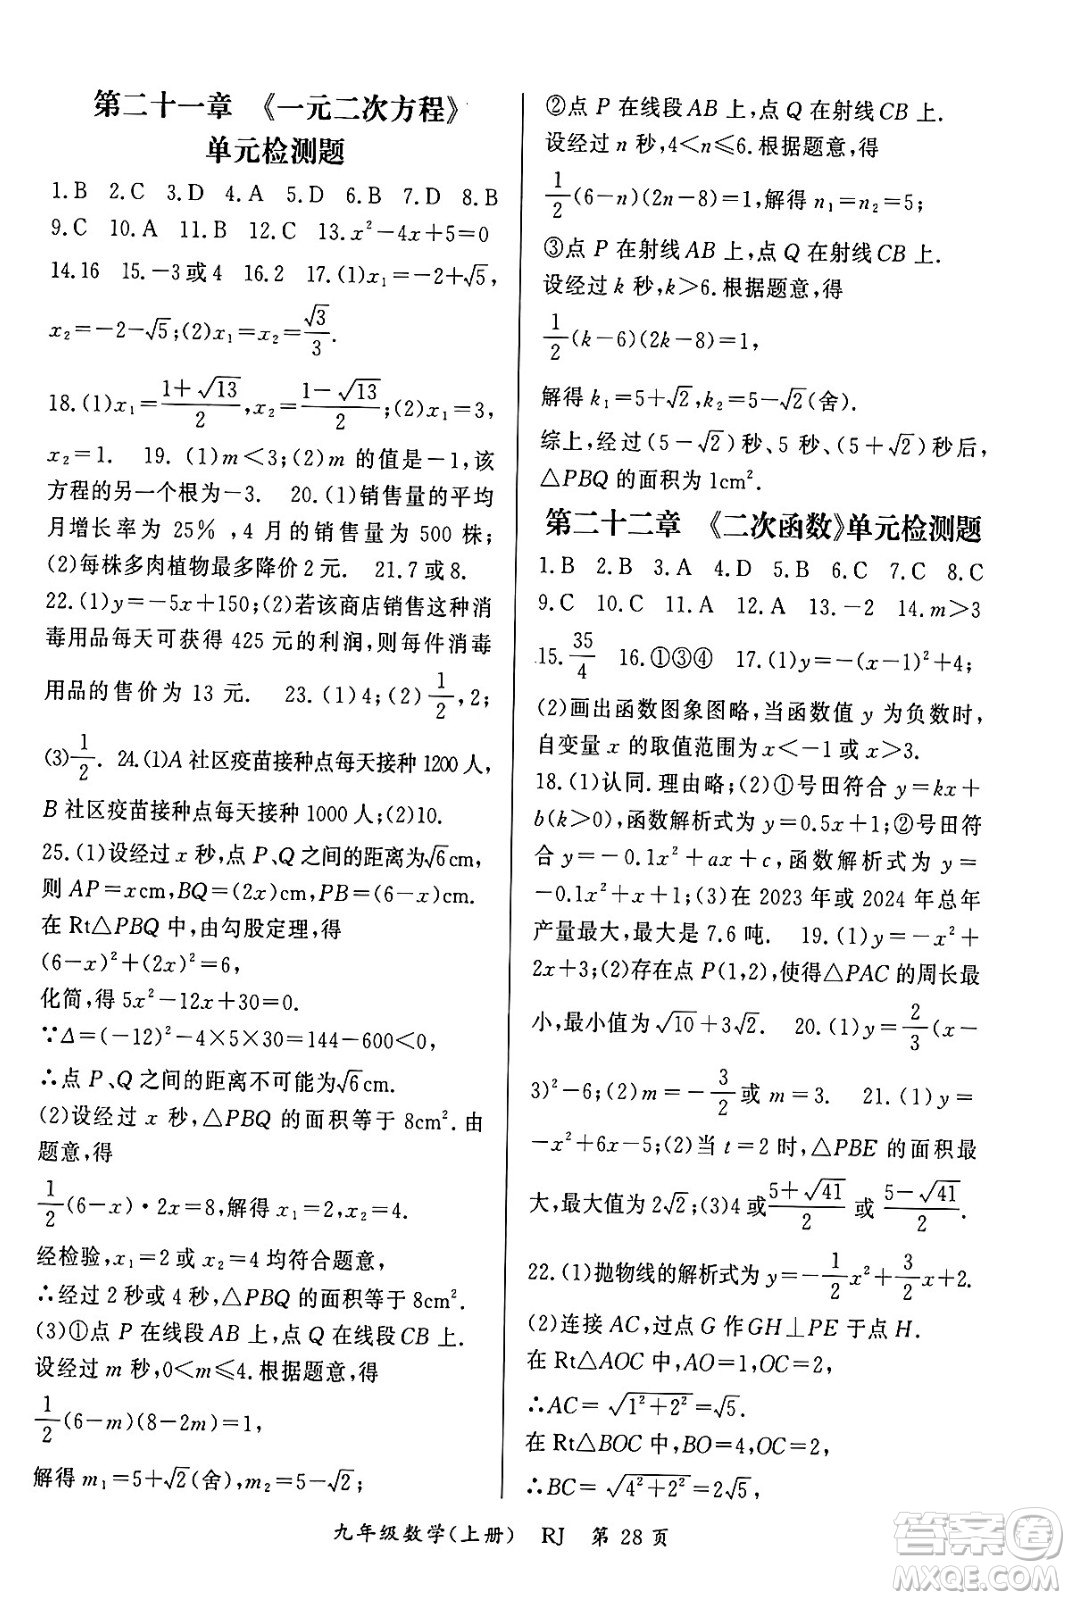 第二十一章 《一元二次方程》
单元检测题
1.B 2.C 3.D 4.A 5.D 6.B 7.D 8.B
9.C 10.A 11.B 12.C 13.x²-4x+5=0
14.16 15.-3或4 16.2 17.(1)x₁=-2+√5,
x₂=-2-√5;(2)x₁=x₂=√3/3.
18.(1)x₁=(1+√13)/2,x₂=(1-√13)/2;(2)x₁=3,
x₂=1. 19.(1)m<3;(2)m的值是-1,该
方程的另一个根为-3. 20.(1)销售量的平均
月增长率为25%,4月的销售量为500株;
(2)每株多肉植物最多降价2元. 21.7或8.
22.(1)y=-5x+150;(2)若该商店销售这种消
毒用品每天可获得425元的利润,则每件消毒
用品的售价为13元. 23.(1)4;(2)1/2,2;
(3)1/2. 24.(1)A社区疫苗接种点每天接种1200人,
B社区疫苗接种点每天接种1000人;(2)10.
25.(1)设经过x秒,点P、Q之间的距离为√6cm,
则AP=xcm,BQ=(2x)cm,PB=(6-x)cm.
在Rt△PBQ中,由勾股定理,得
(6-x)²+(2x)²=6,
化简,得5x²-12x+30=0.
∵Δ=(-12)²-4×5×30=144-600<0,
∴点P、Q之间的距离不可能为√6cm.
(2)设经过x秒,△PBQ的面积等于8cm².由
题意,得
1/2(6-x)·2x=8,解得x₁=2,x₂=4.
经检验,x₁=2或x₂=4均符合题意,
∴经过2秒或4秒,△PBQ的面积等于8cm².
(3)①点P在线段AB上,点Q在线段CB上.
设经过m秒,0<m≤4.根据题意,得
1/2(6-m)(8-2m)=1,
解得m₁=5+√2(舍),m₂=5-√2;
②点P在线段AB上,点Q在射线CB上.
设经过n秒,4<n≤6.根据题意,得
1/2(6-n)(2n-8)=1,解得n₁=n₂=5;
③点P在射线AB上,点Q在射线CB上.
设经过k秒,k>6.根据题意,得
1/2(k-6)(2k-8)=1,
解得k₁=5+√2,k₂=5-√2(舍).
综上,经过(5-√2)秒、5秒、(5+√2)秒后,
△PBQ的面积为1cm².
第二十二章 《二次函数》单元检测题
1.B 2.B 3.A 4.D 5.B 6.C 7.C 8.C
9.C 10.C 11.A 12.A 13.-2 14.m>3
15.35/4 16.①③④ 17.(1)y=-(x-1)²+4;
(2)画出函数图象图略,当函数值y为负数时,
自变量x的取值范围为x<-1或x>3.
18.(1)认同.理由略;(2)①号田符合y=kx+
b(k>0),函数解析式为y=0.5x+1;②号田符
合y=-0.1x²+ax+c,函数解析式为y=
-0.1x²+x+1;(3)在2023年或2024年总年
产量最大,最大是7.6吨. 19.(1)y=-x²+
2x+3;(2)存在点P(1,2),使得△PAC的周长最
小,最小值为√10+3√2. 20.(1)y=2/3(x-
3)²-6;(2)m=-3/2或m=3. 21.(1)y=
-x²+6x-5;(2)当t=2时,△PBE的面积最
大,最大值为2√2;(3)4或(5+√41)/2或(5-√41)/2.
22.(1)抛物线的解析式为y=-1/2x²+3/2x+2.
(2)连接AC,过点G作GH⊥PE于点H.
在Rt△AOC中,AO=1,OC=2,
∴AC=√(1²+2²)=√5.
在Rt△BOC中,BO=4,OC=2,
∴BC=√(4²+2²)=2√5,
九年级数学(上册) RJ 第28页
作业精灵